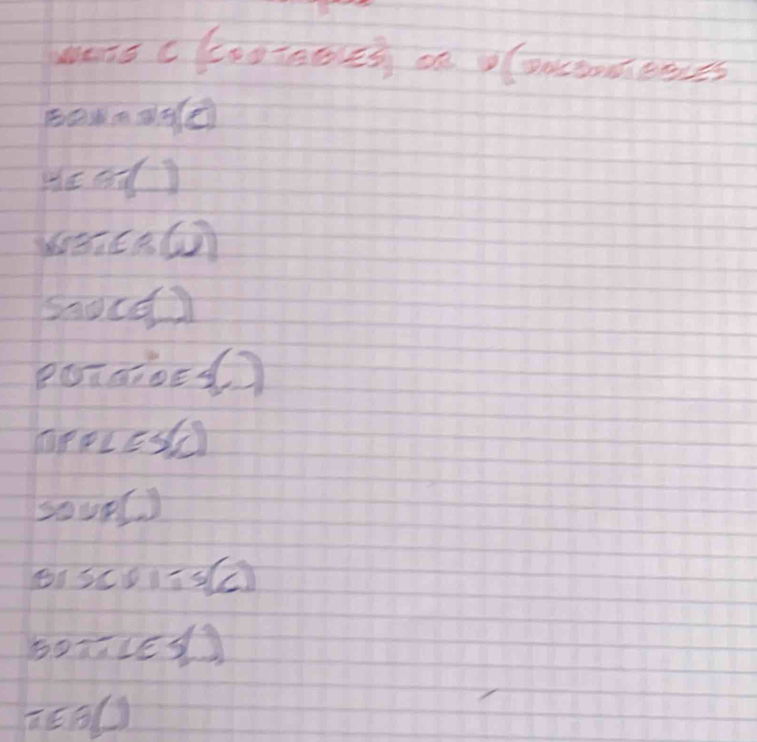 WRITE C (COUNTABLES) OR U (UNCOUNTABLES
BANANA(C)
MEAT( )
WATER(U)
SAUCE(..)
POTATOES(..)
APPLES(C)
SOUP(..)
BISCUITS(C)
BOTTLES(..)
TEA( )